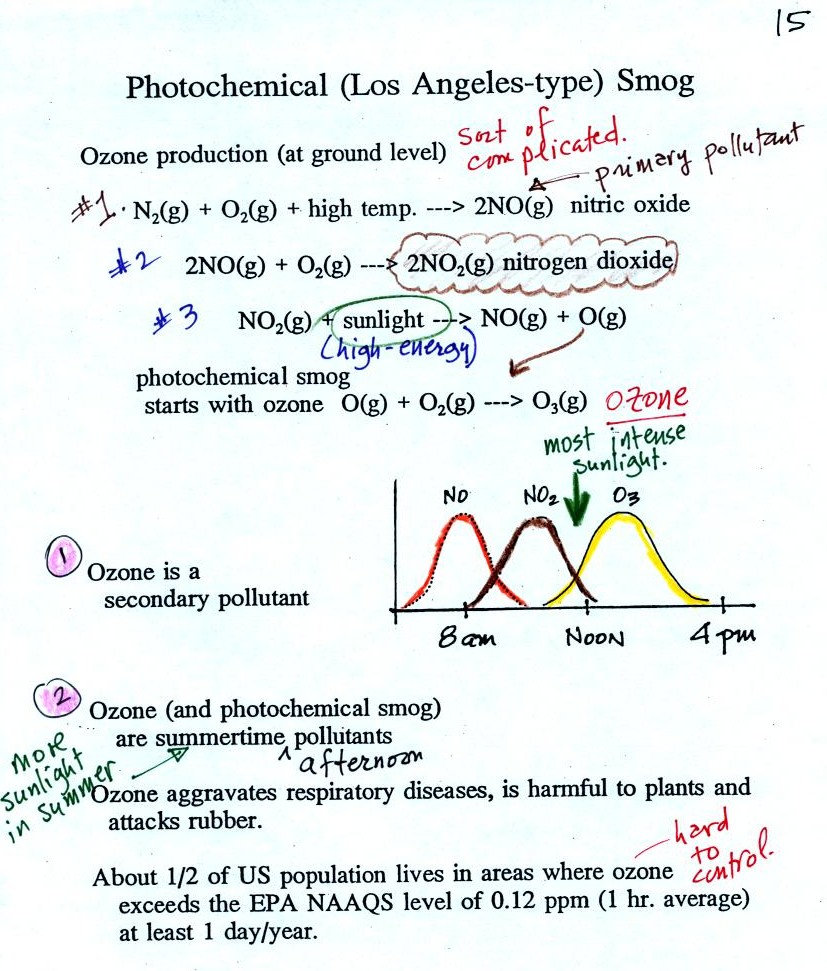 15
Photochemical (Los Angeles-type) Smog
Ozone production (at ground level) sort of complicated.
primary pollutant
#1. N₂(g) + O₂(g) + high temp. ---> 2NO(g) nitric oxide
#2 2NO(g) + O₂(g) ---> 2NO₂(g) nitrogen dioxide
#3 NO₂(g) + sunlight ---> NO(g) + O(g)
(high-energy)
photochemical smog
starts with ozone O(g) + O₂(g) ---> O₃(g) Ozone
most intense
sunlight.
NO NO₂ O₃
1 Ozone is a
secondary pollutant
8 am NOON 4 pm
2 Ozone (and photochemical smog)
are summertime ^ pollutants
afternoon
more
sunlight
in summer
Ozone aggravates respiratory diseases, is harmful to plants and
attacks rubber.
hard
to
control.
About 1/2 of US population lives in areas where ozone
exceeds the EPA NAAQS level of 0.12 ppm (1 hr. average)
at least 1 day/year.